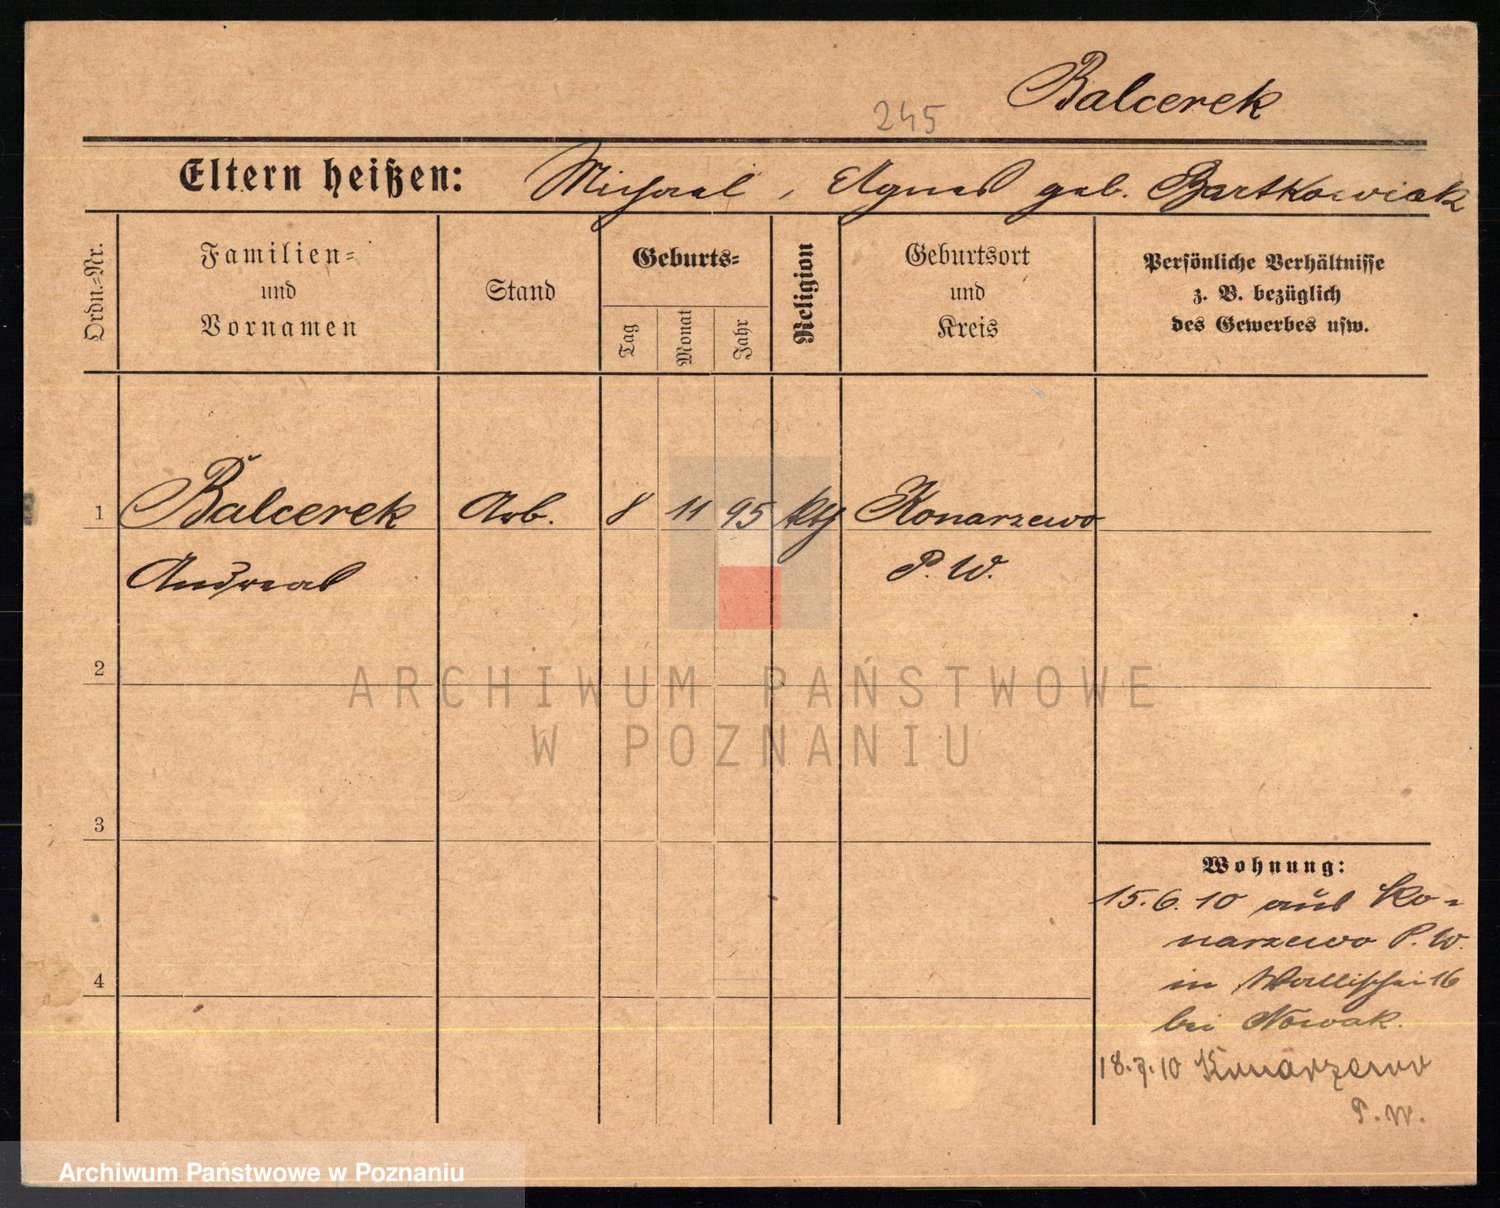 Balcerek
245
Eltern heißen: Michael, Agnes geb. Bartkowiak
Ordn.-Nr.
Familien-
und
Vornamen
Stand
Geburts-
Tag
Monat
Jahr
Religion
Geburtsort
und
Kreis
Persönliche Verhältnisse
z. B. bezüglich
des Gewerbes usw.
1 Balcerek Arb. 8 11 95 kth Konarzewo
Andreas P. W.
2
ARCHIWUM PAŃSTWOWE
W POZNANIU
3
Wohnung:
15.6.10 aus Ko-
narzewo P. W.
4
in Wallischei 16
bei Nowak.
18.7.10 Konarzewo
P. W.
Archiwum Państwowe w Poznaniu